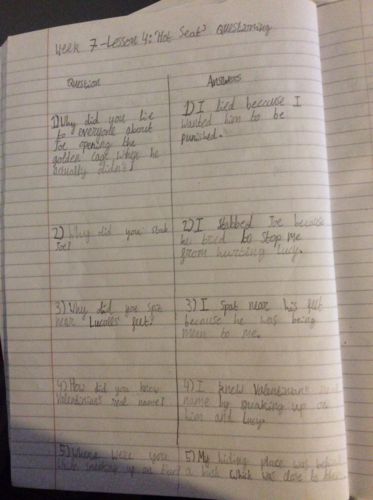 Week 7-Lesson 4: "Hot Seat" Questioning
Question
Answers
1) Why did you lie
to everyone about
Joe opening the
golden cage when he
actually didn't?
1) I lied because I
wanted him to be
punished.
2) Why did you stab
Joe?
2) I stabbed Joe because
he tried to stop me
from hurting Lucy.
3) Why did you spit
near Luculls' feet?
3) I spat near his feet
because he was being
mean to me.
4) How did you know
Valentinian's real name?
4) I knew Valentinian's real
name by sneaking up on
him and Lucy.
5) Where were you
while sneaking up on
5) My hiding place was behind
a bush which was close to them